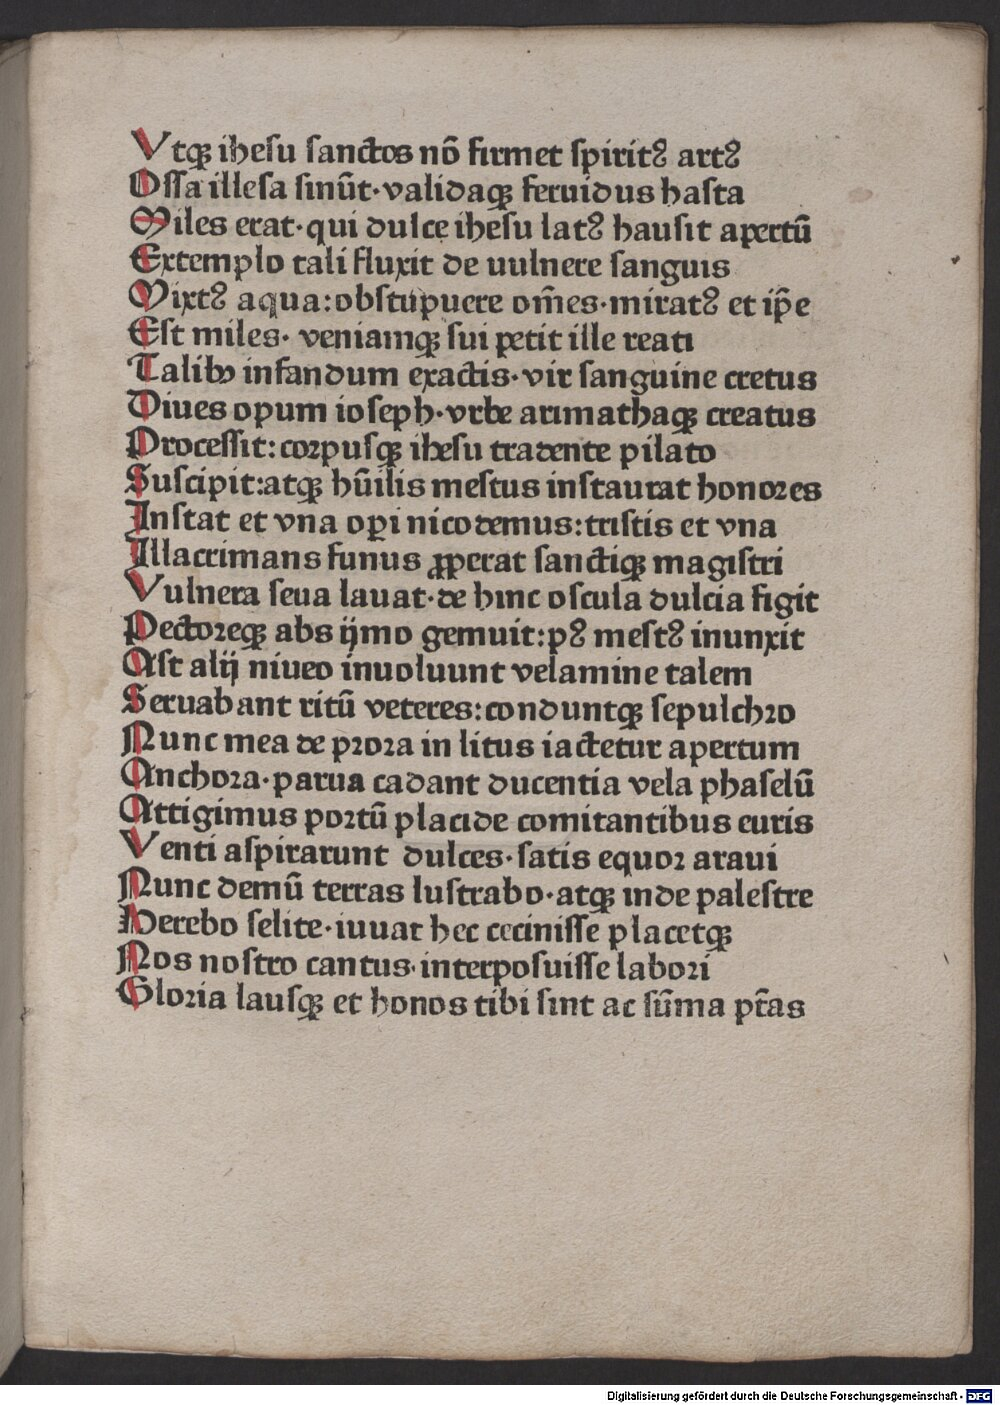 Vtqꝫ ihesu sanctos nō firmet spiritꝰ artꝰ
Ossa illesa sinūt·validaqꝫ feruidus hasta
Miles erat·qui dulce ihesu latꝰ hausit apertū
Extemplo tali fluxit de uulnere sanguis
Mixtꝰ aqua:obstupuere om̄es·miratꝰ et ip̄e
Est miles· veniamqꝫ sui petit ille reati
Talibꝫ infandum exactis·vir sanguine cretus
Diues opum ioseph·vrbe arimathaqꝫ creatus
Processit:corpusqꝫ ihesu tradente pilato
Suscipit:atqꝫ hūilis mestus instaurat honores
Instat et vna oꝑi nicodemus:tristis et vna
Illacrimans funus ꝓperat sanctiqꝫ magistri
Vulnera seua lauat·de hinc oscula dulcia figit
Pectoreqꝫ abs ijmo gemuit:pꝰ mestꝰ inunxit
Ast alij niueo inuoluunt velamine talem
Seruabant ritū veteres:conduntqꝫ sepulchro
Nunc mea de prora in litus iactetur apertum
Anchora·parua cadant ducentia vela phaselū
Attigimus portū placide comitantibus euris
Venti aspirarunt dulces·satis equor araui
Nunc demū terras lustrabo·atqꝫ inde palestre
Herebo selite·iuuat hec cecinisse placetqꝫ
Nos nostro cantus·interposuisse labori
Gloria lausqꝫ et honos tibi sint ac sūma pt̄as
Digitalisierung gefördert durch die Deutsche Forschungsgemeinschaft - DFG